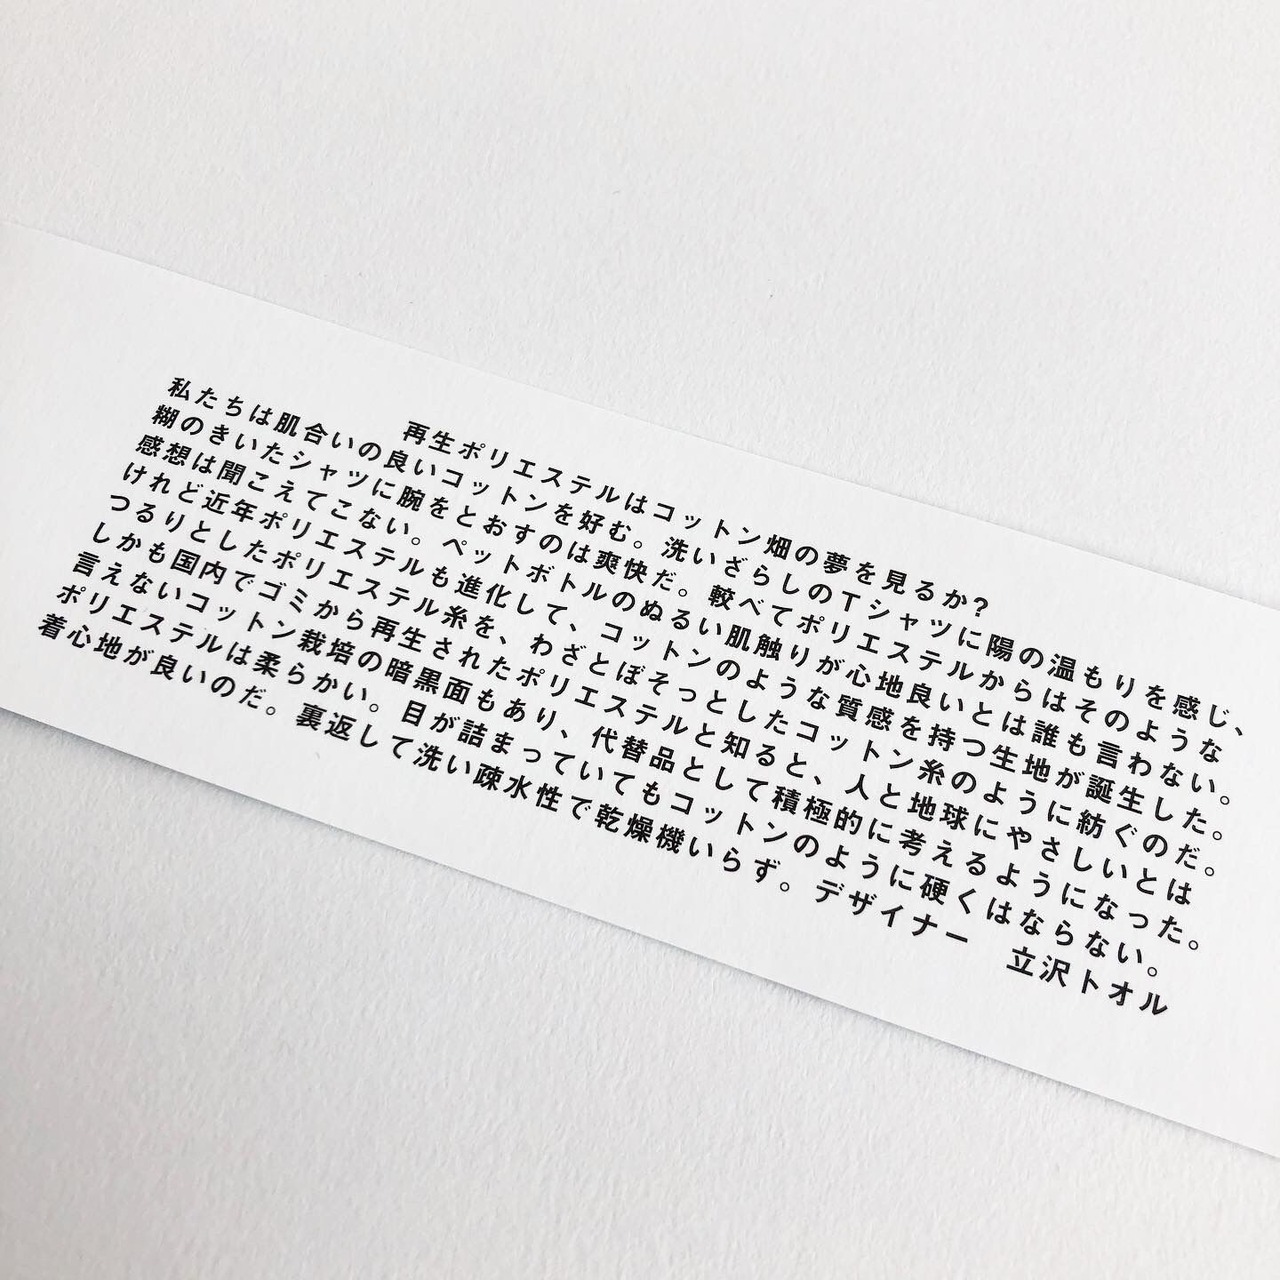 再生ポリエステルはコットン畑の夢を見るか?
私たちは肌合いの良いコットンを好む。洗いざらしのTシャツに陽の温もりを感じ、
糊のきいたシャツに腕をとおすのは爽快だ。較べてポリエステルからはそのような
感想は聞こえてこない。ペットボトルのぬるい肌触りが心地良いとは誰も言わない。
けれど近年ポリエステルも進化して、コットンのような質感を持つ生地が誕生した。
つるりとしたポリエステル糸を、わざとぼそっとしたコットン糸のように紡ぐのだ。
しかも国内でゴミから再生されたポリエステルと知ると、人と地球にやさしいとは
言えないコットン栽培の暗黒面もあり、代替品として積極的に考えるようになった。
ポリエステルは柔らかい。目が詰まっていてもコットンのように硬くはならない。
着心地が良いのだ。裏返して洗い疎水性で乾燥機いらず。デザイナー　立沢トオル